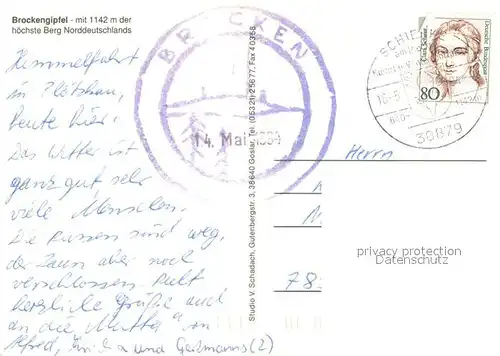 Brockengipfel - mit 1142 m der
höchste Berg Norddeutschlands
Himmelfahrt
in Plötzkau,
heute hier!
Das Wetter ist
ganz gut, sehr
viele Menschen.
Die Russen sind weg,
der Zaun aber noch
verschlossen.
herzliche Grüße auch
an die Mutter von
Alfred, und Geitmanns (2)
Studio V. Schadach, Gutenbergstr. 3, 38640 Goslar, Tel. (05321) 25677, Fax 40358
BROCKEN
14. Mai 1994
SCHIERKE
38879
Deutsche Bundespost
80
Herrn
78
privacy protection
Datenschutz